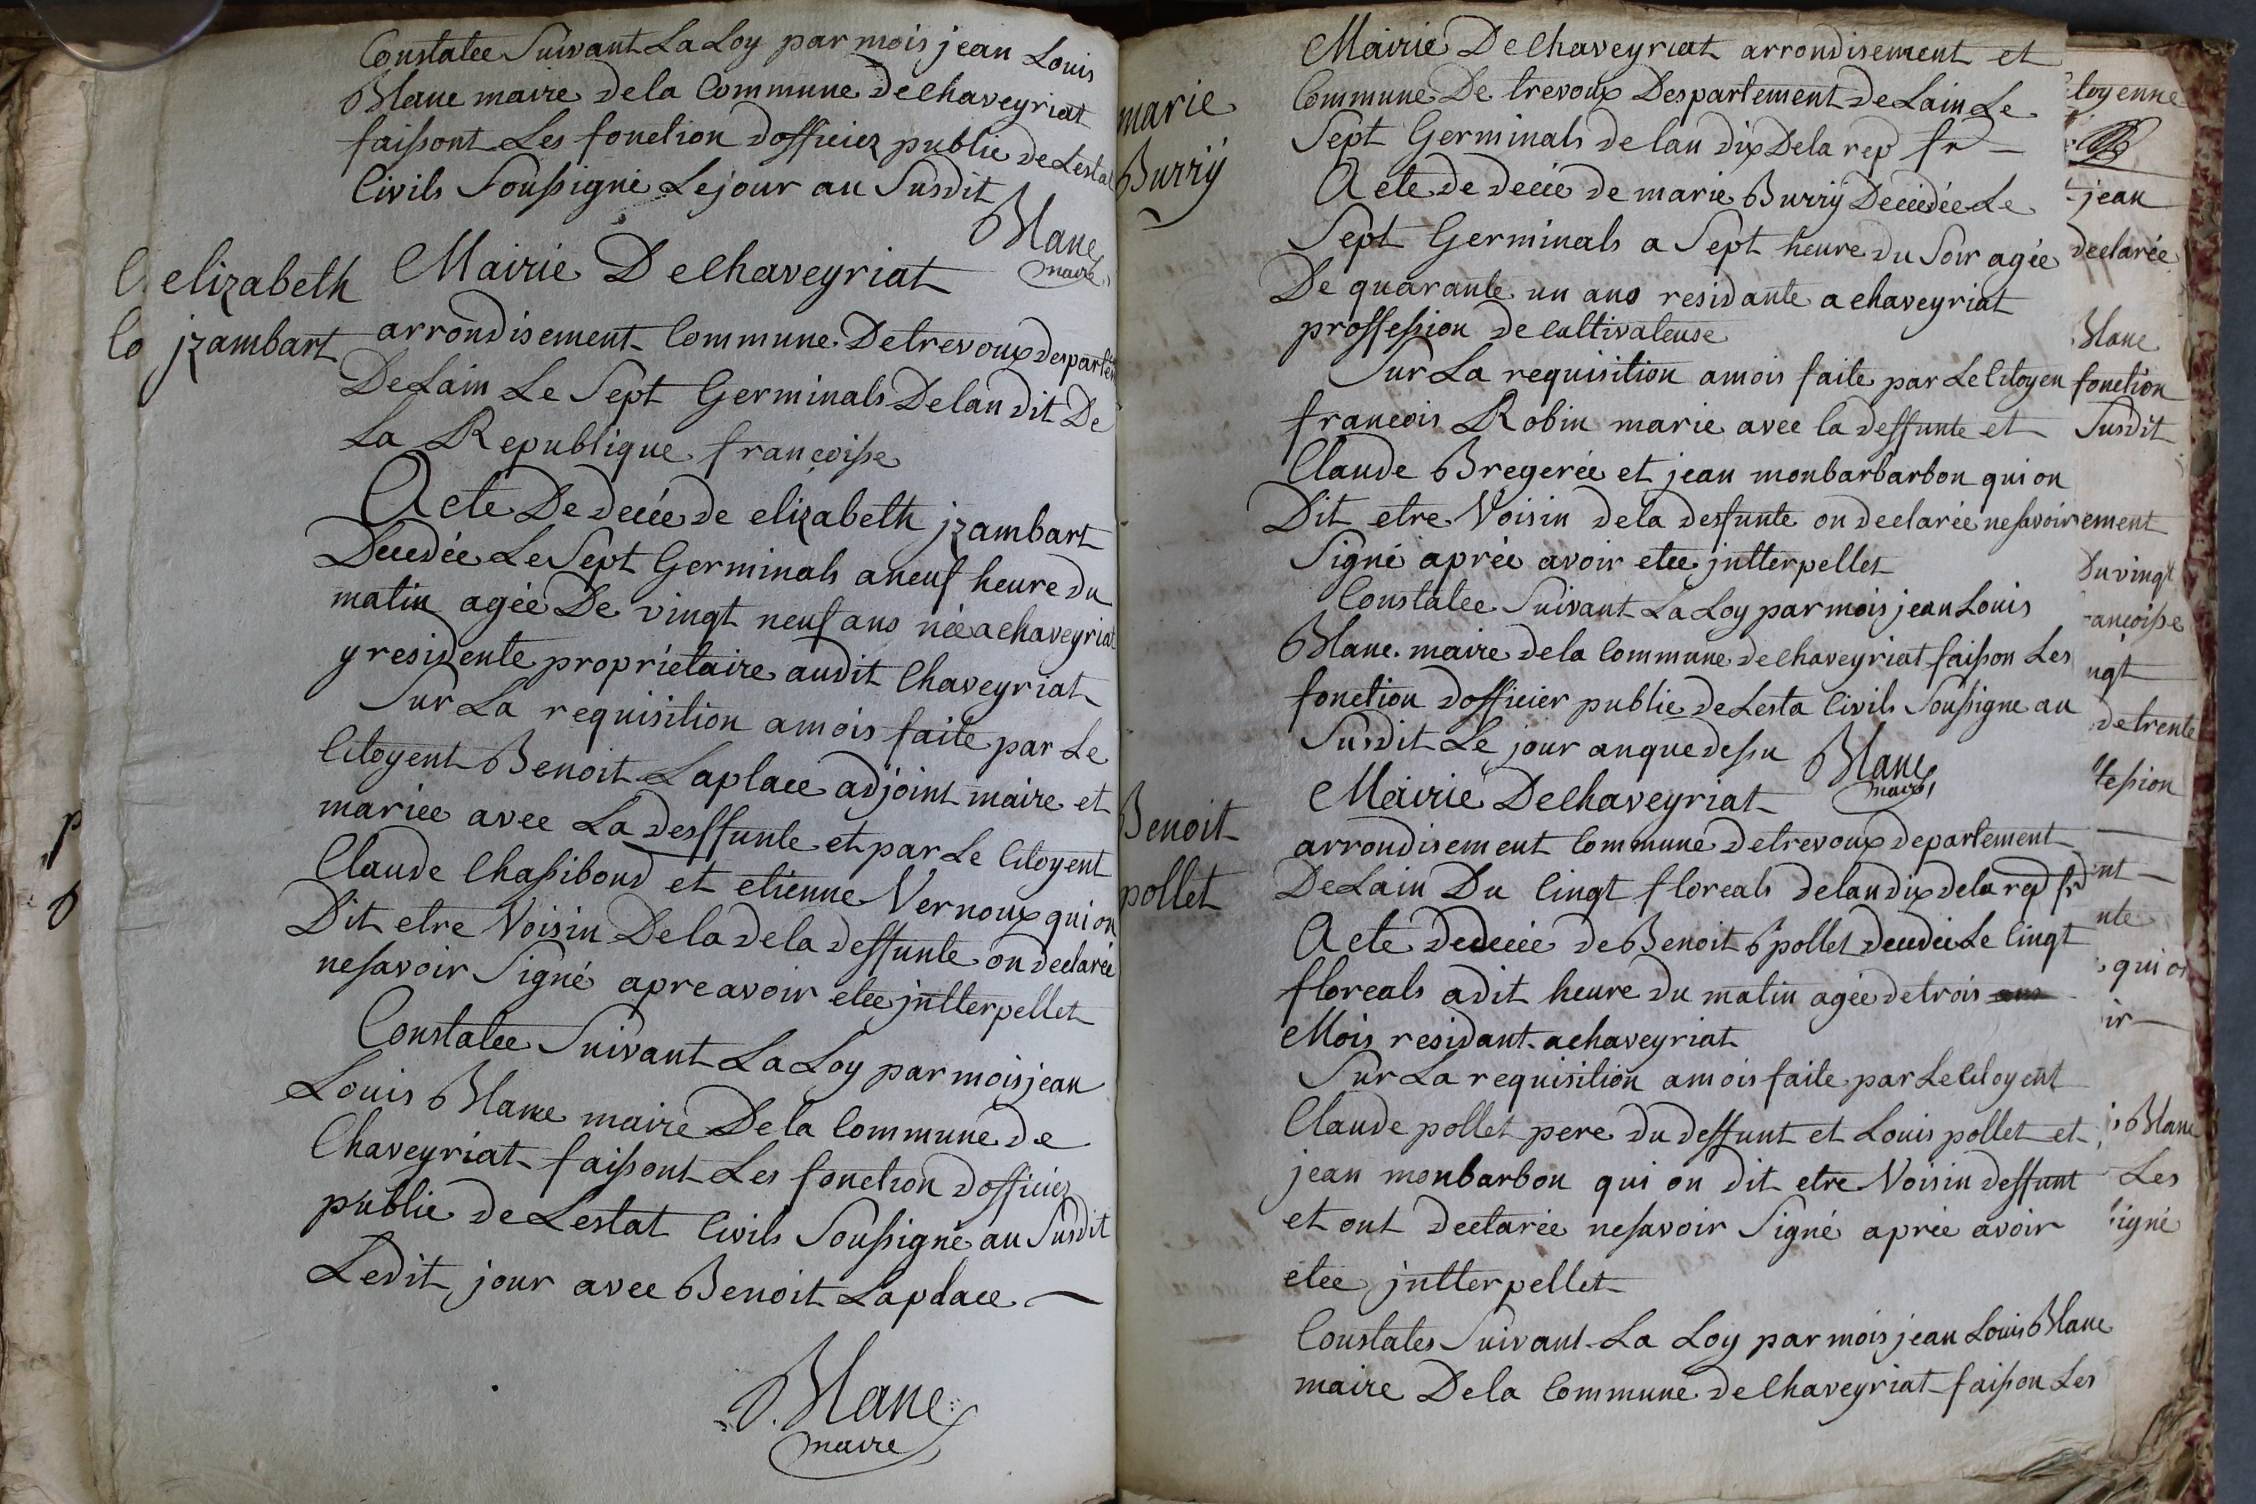 Constatee Suivant La Loy par mois jean Louis
Blanc maire dela Commune Dechaveyriat
faissont Les fonction dofficier public de Lesta
Civils Soussigné Lejour au Susdit
Blanc
maire
elizabeth
jzambart
Mairie Dechaveyriat
arrondisement Commune Detrevoux despartem
De Lain Le Sept Germinals Delan dit De
La Republique françoisse
Acte De decée de elizabeth jzambart
Decedée Le Sept Germinals aneuf heure du
matin agée De vingt neuf ans née achaveyriat
y residente proprietaire audit Chaveyriat
Sur La requisition amois faite par Le
Citoyent Benoit Laplace adjoint maire et
mariee avec La desffunte et par Le Citoyent
Claude Chassiboud et etienne Vernoux qui on
Dit etre Voisin Dela dela deffunte on declarée
nesavoir Signé apre avoir etee jntterpellet
Constatee Suivant La Loy par mois jean
Louis Blanc maire Dela Commune de
Chaveyriat faissont Les fonction dofficier
public de Lestat Civils Soussigné au Susdit
Ledit jour avec Benoit Laplace
Blanc
maire
marie
Burrÿ
Mairie Dechaveyriat arrondisement et
Commune De trevoux Despartement de Lain Le
Sept Germinals de lan dix Dela rep fr
Acte de decée de marie Burrÿ Decedée Le
Sept Germinals a Sept heure du Soir agée
De quarante un ans residante achaveyriat
proffession de cultivateuse
Sur La requisition amois faite par Le Citoyen
francois Robin marie avec la deffunte et
Claude Bregerée et jean monbarbarbon qui on
Dit etre Voisin dela desfunte on declarée nesavoir
Signé aprée avoir etee jntterpellet
Constatee Suivant La Loy par mois jean Louis
Blanc maire dela Commune de Chaveyriat faisson Les
fonction dofficier public de Lesta Civils Soussigne au
Susdit Le jour anque dessu
Blanc
maire
Benoit
pollet
Mairie Dechaveyriat
arrondisement Commune detrevoux departement
De Lain Du Cingt floreals delan dix dela rep fr
Acte dedecée de Benoit pollet decedée Le Cingt
floreals adit heure du matin agée detrois
Mois residant achaveyriat
Sur La requisition amois faite par Le Citoyent
Claude pollet pere du deffunt et Louis pollet et
jean monbarbon qui on dit etre Voisin deffunt
et ont declarée nesavoir Signé aprée avoir
etee jntterpellet
Constatee Suivant La Loy par mois jean Louis Blanc
maire Dela Commune de Chaveyriat faisson Les
jean
declarée
Blanc
fonction
Susdit
ement
du vingt
detrente
qui on
Blanc
Les